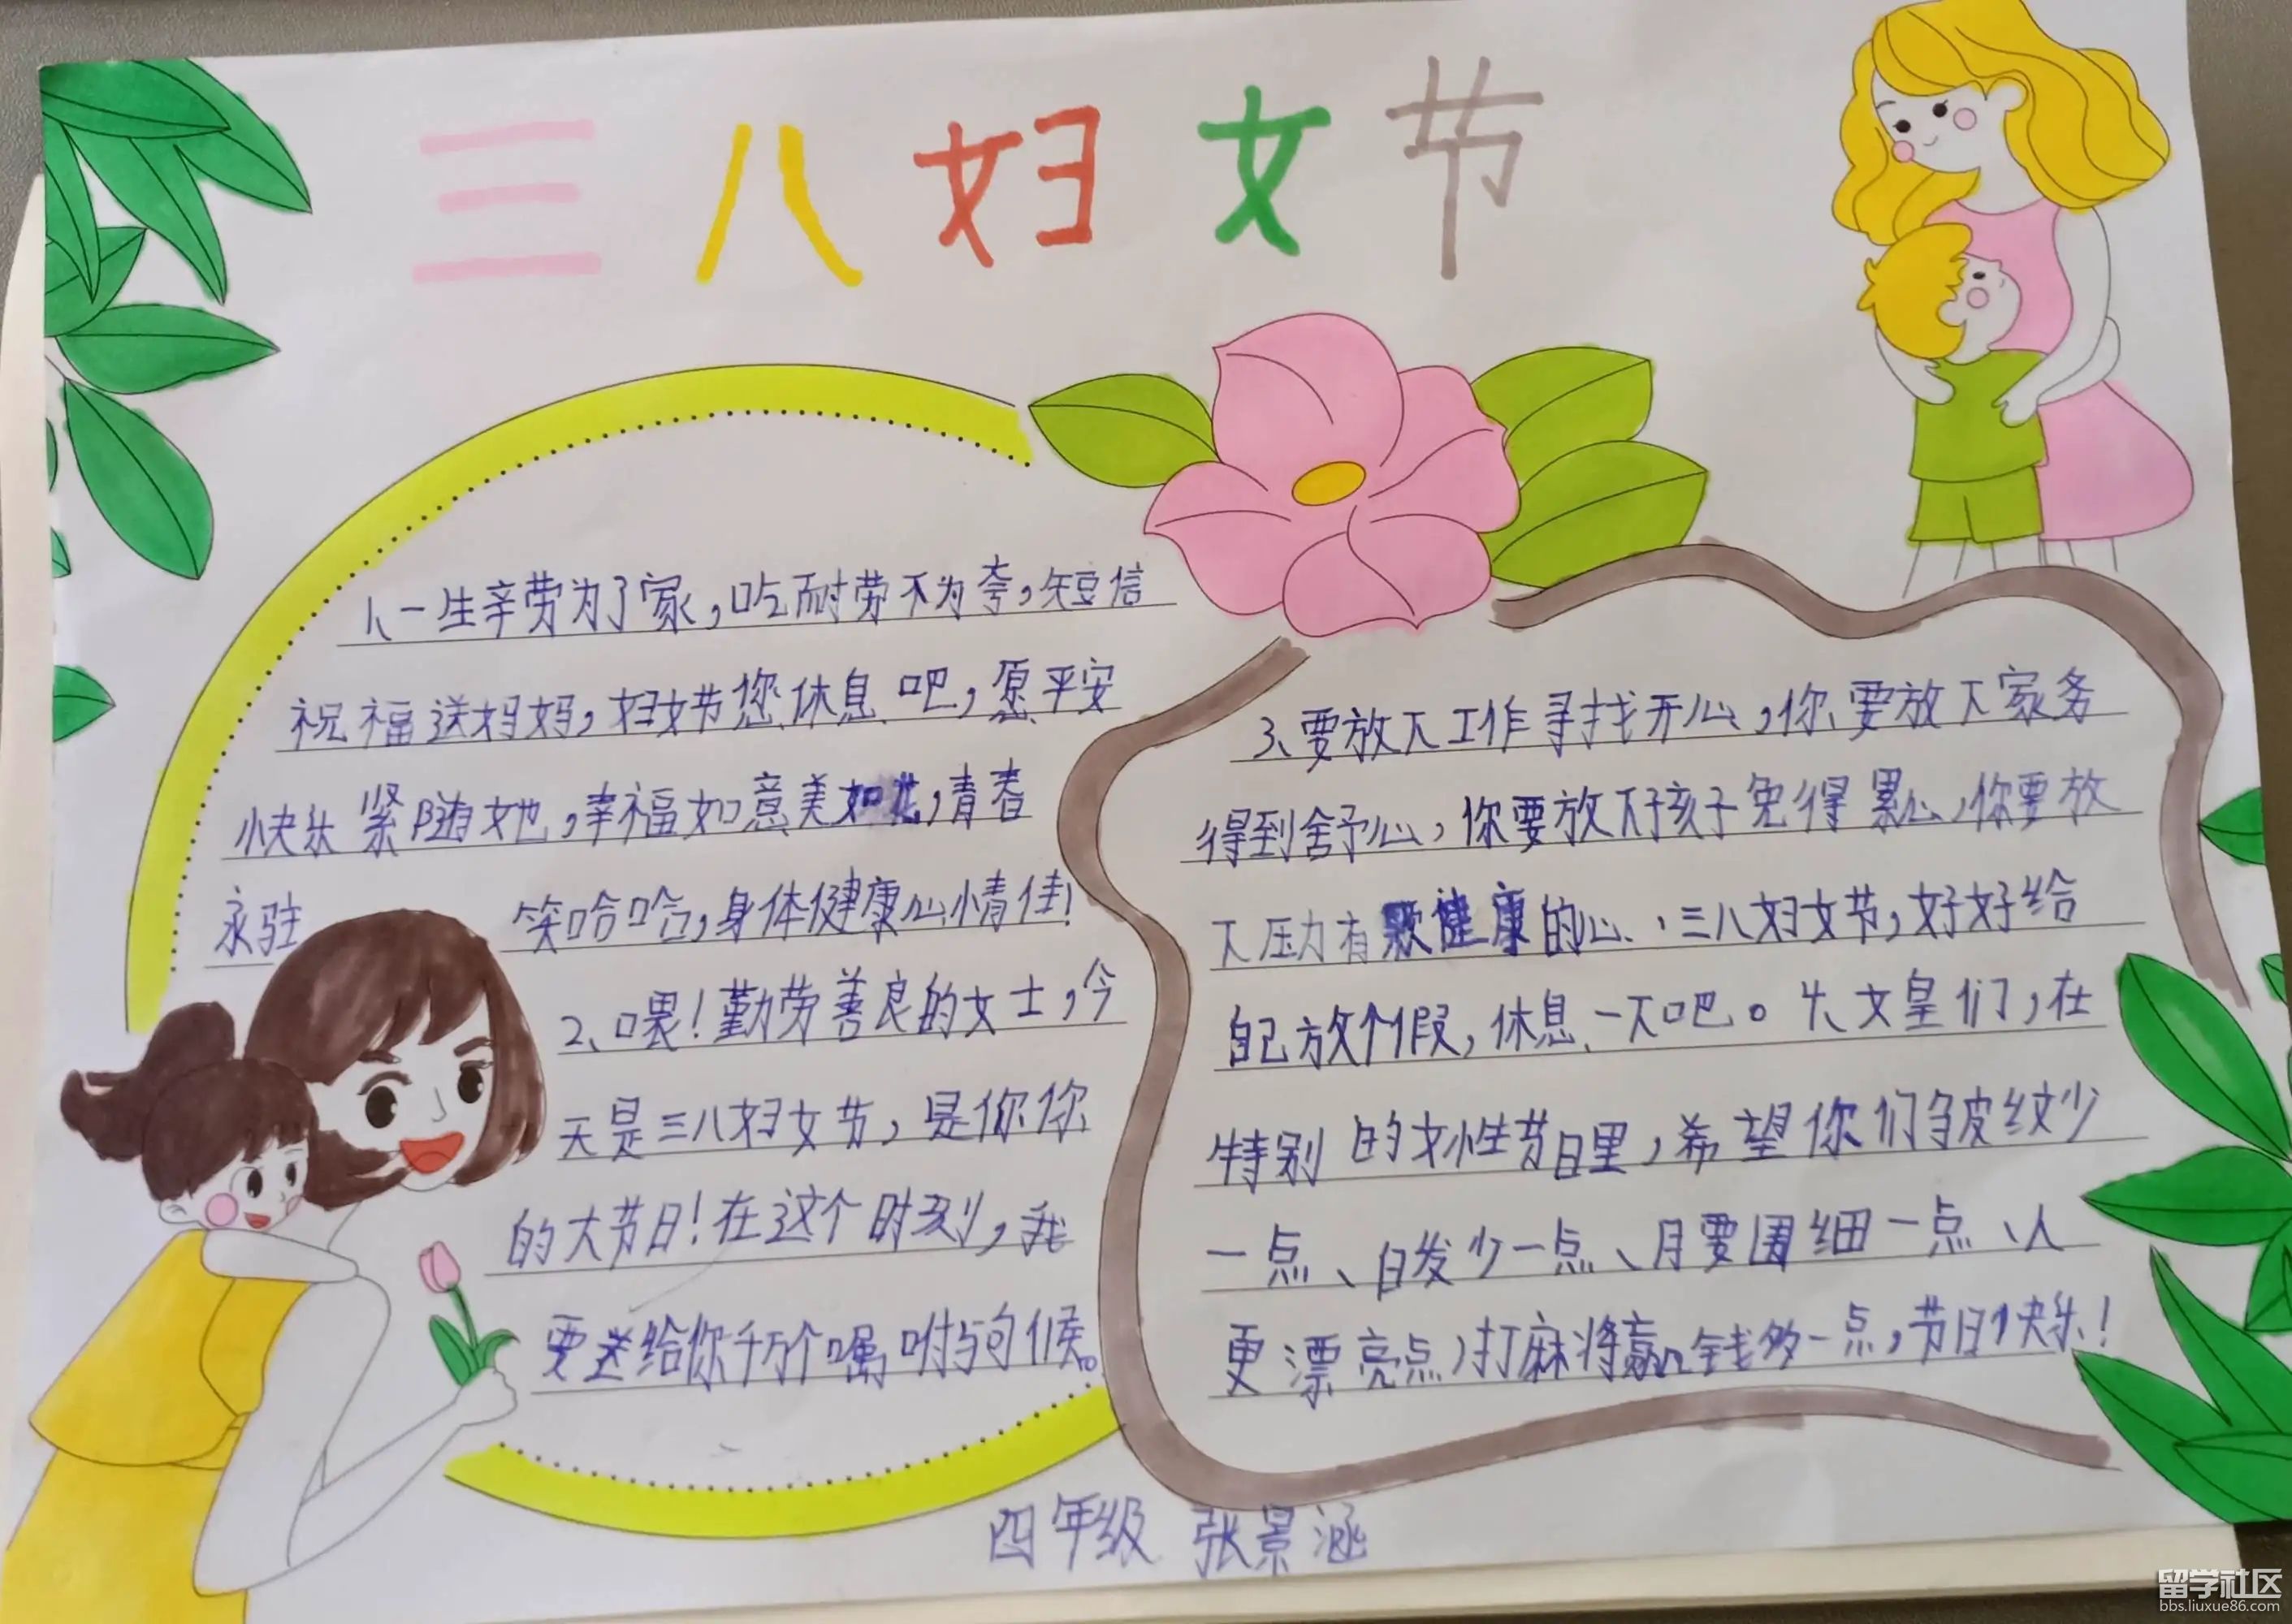 三八妇女节
1、一生辛劳为了家，吃耐劳不为夸，短信
祝福送妈妈，妇女节您休息吧，愿平安
快乐紧随她，幸福如意美如花，青春
永驻 笑哈哈，身体健康心情佳！
2、喂！勤劳善良的女士，今
天是三八妇女节，是你你
的大节日！在这个时刻，我
要送给你千万个嘱咐与问候。
3、要放下工作寻找开心，你要放下家务
得到舒心，你要放下孩子免得累心，你要放
下压力有颗健康的心、三八妇女节，好好给
自己放个假，休息一下吧。4、女皇们，在
特别的女性节日里，希望你们多皮纹少
一点、白发少一点、月要围细一点、人
更漂亮点，打麻将赢钱多一点，节日快乐！
四年级 张景涵
留学社区
bbs.liuxue86.com